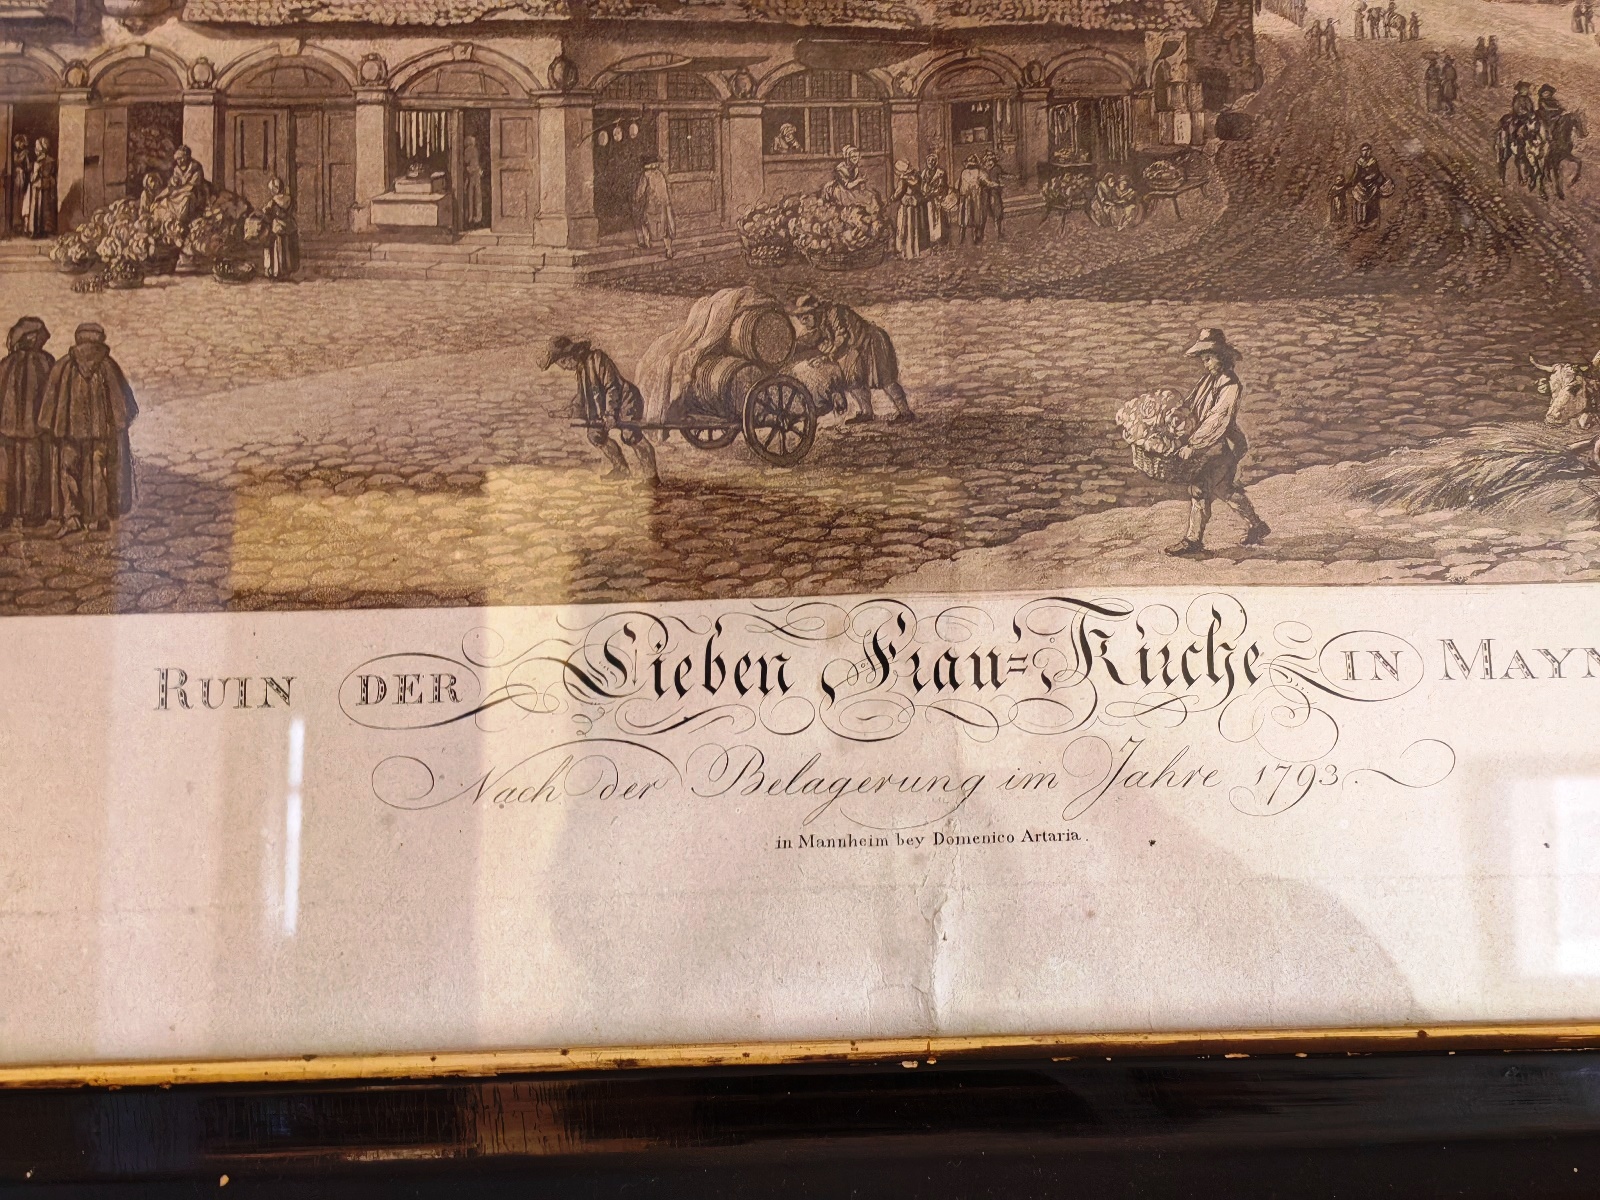 RUIN DER Lieben Frau=Kirche IN MAYN
Nach der Belagerung im Jahre 1793.
in Mannheim bey Domenico Artaria.